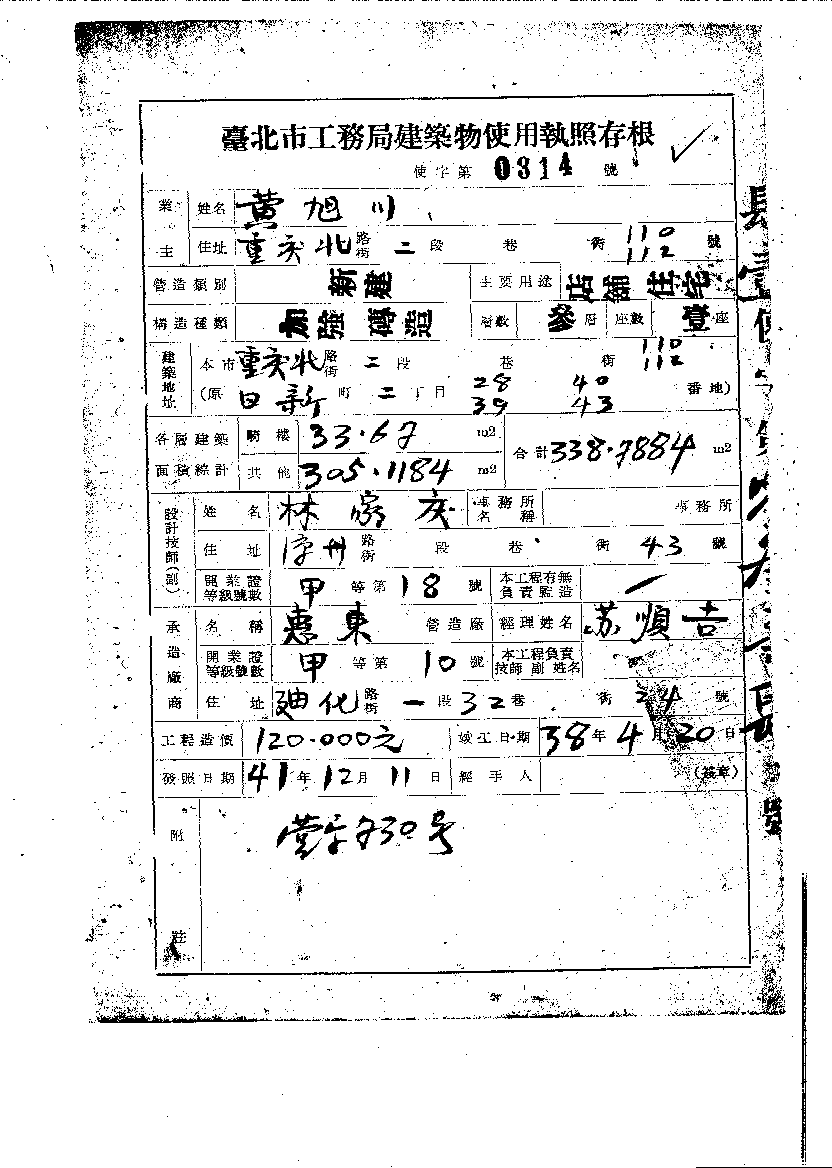 臺北市工務局建築物使用執照存根
使字第 0314 號
業主 姓名 黃旭川
住址 重慶北路街二段 巷 街 110 112 號
營造類別 新建 主要用途 店舖住宅
構造種類 加強磚造 層數 參層 座數 壹座
建築地址 本市重慶北路街二段 巷 街 110 112
(原 日新町二丁目 28 39 40 43 番地)
各層建築面積綜計 騎樓 33.67 m2 合計 338.7884 m2
其他 305.1184 m2
設計技師(副) 姓名 林家慶 事務所名稱 事務所
住址 涼州路街 段 巷 街 43 號
開業證等級號數 甲等第18號 本工程有無負責監造
承造廠商 名稱 惠東 營造廠 經理姓名 苏順吉
開業證等級號數 甲等第10號 本工程負責技師副姓名
住址 廸化路街一段32巷 街 24 號
工程造價 120.000元 竣工日期 38年4月20日
發照日期 41年12月11日 經手人 (簽章)
附註 營字730号